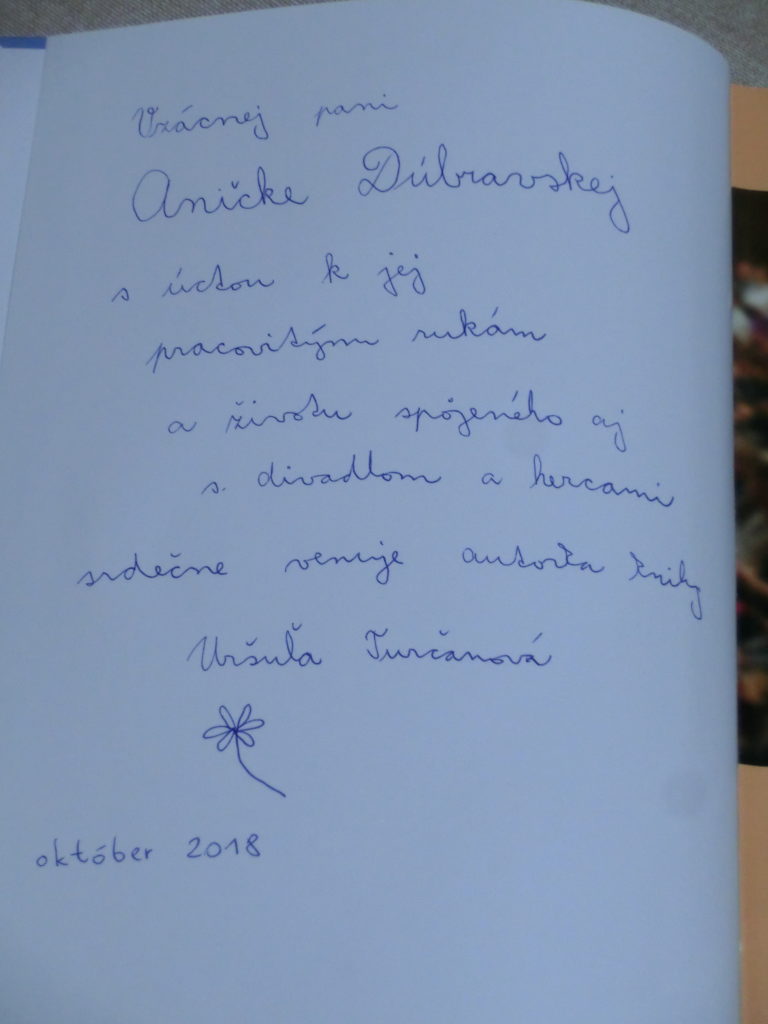 Vzácnej pani
Aničke Dúbravskej
s úctou k jej
pracovitým rukám
a životu spojeného aj
s divadlom a hercami
srdečne venuje autorka knihy
Uršuľa Turčanová
október 2018